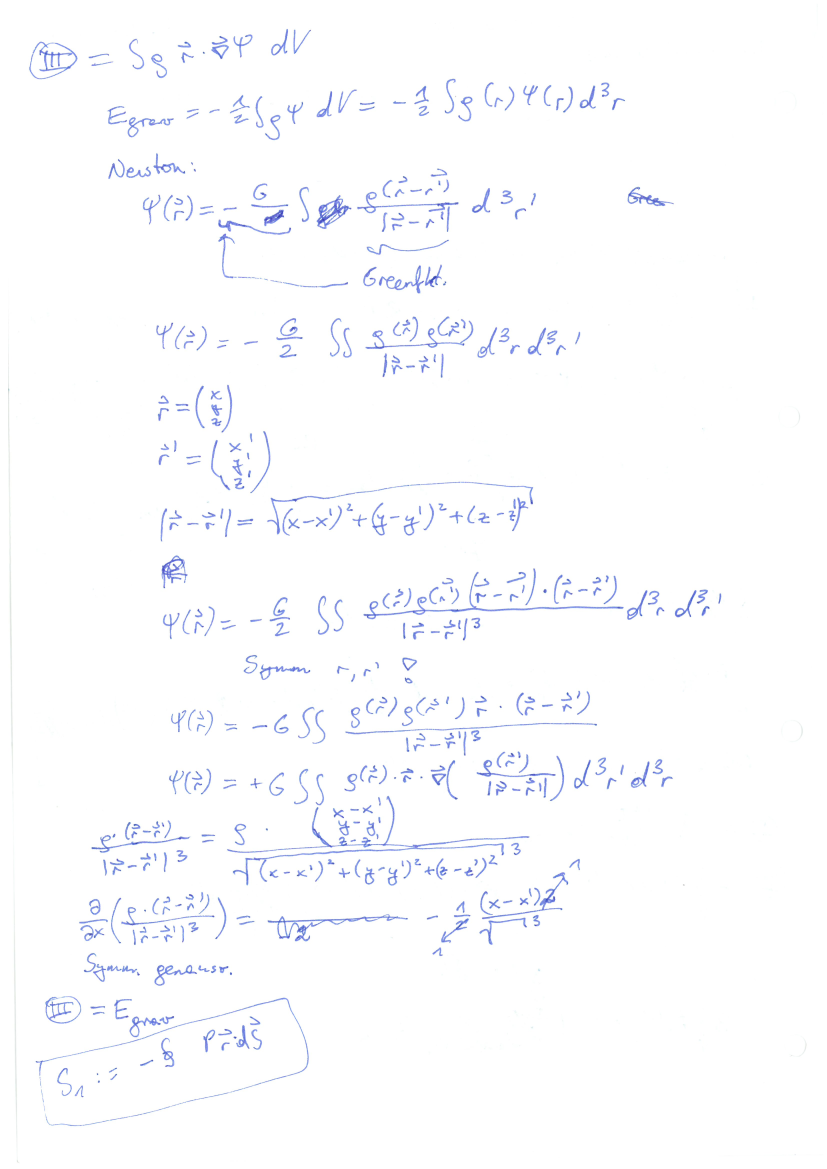 (III) = ∫ρ r⃗ · ∇⃗Ψ dV
E_grav = - 1/2 ∫ρΨ dV = - 1/2 ∫ρ(r)Ψ(r)d³r
Newton:
Ψ(r⃗) = - G ∫ ρ(r⃗-r⃗')/|r⃗-r⃗'| d³r'
Greenfkt.
Ψ(r⃗) = - G/2 ∫∫ ρ(r⃗)ρ(r⃗')/|r⃗-r⃗'| d³r d³r'
r⃗ = (x y z)
r⃗' = (x' y' z')
|r⃗-r⃗'| = √((x-x')²+(y-y')²+(z-z')²)
Ψ(r⃗) = - G/2 ∫∫ ρ(r⃗)ρ(r⃗')(r⃗-r⃗')·(r⃗-r⃗')/|r⃗-r⃗'|³ d³r d³r'
Symm r, r' !
Ψ(r⃗) = -G∫∫ ρ(r⃗)ρ(r⃗') r⃗ · (r⃗-r⃗')/|r⃗-r⃗'|³
Ψ(r⃗) = +G∫∫ ρ(r⃗)·r⃗·∇⃗(ρ(r⃗')/|r⃗-r⃗'|) d³r' d³r
ρ·(r⃗-r⃗')/|r⃗-r⃗'|³ = ρ · (x-x' y-y' z-z')/√((x-x')²+(y-y')²+(z-z')²)³
∂/∂x (ρ·(r⃗-r⃗')/|r⃗-r⃗'|³) = - 1/2 (x-x')2/√³
1 1
Symm. genauso.
(III) = E_grav
S₁ := -∮ P r⃗·dS⃗